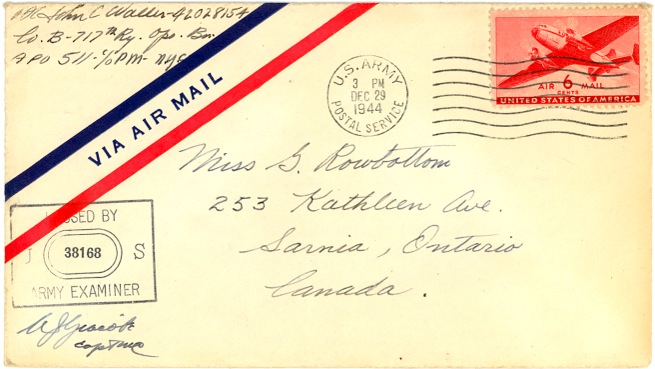 John C Waller - 42028154
Co. B - 717th Ry. Opo. Bn
APO 511 - % PM - nyc
VIA AIR MAIL
U.S. ARMY
3 PM
DEC 29
1944
POSTAL SERVICE
AIR 6 MAIL
CENTS
UNITED STATES OF AMERICA
Miss G. Rowbottom
253 Kathleen Ave.
Sarnia, Ontario
Canada.
BY
38168
S
ARMY EXAMINER